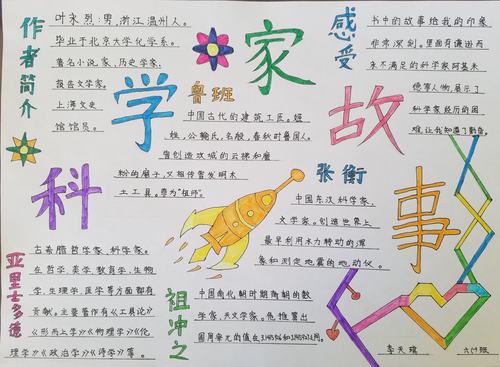 作者简介
叶永烈:男,浙江温州人。
毕业于北京大学化学系。
著名小说家、历史学家、
报告文学家。
上海文史
馆馆员。
科学家故事
感受
书中的故事给我的印象
非常深刻。里面有谦逊而
永不满足的科学家阿基米
使事人物,展示了
科学家经历的困
难,让我知道了勤奋。
鲁班
中国古代的建筑工匠。姬
姓,公输氏,名般,春秋时鲁国人。
曾创造攻城的云梯和磨
粉的磨子,又相传曾发明木
土工具。尊为“祖师”。
张衡
中国东汉科学家、
文学家。创造世界上
最早利用水力转动的浑
象和测定地震的地动仪。
亚里士多德
古希腊哲学家,科学家。
在哲学,美学,教育学,生物
学,生理学,医学等方面都有
贡献。主要著作有《工具论》
《形而上学》《物理学》《伦
理学》《政治学》《诗学》等。
祖冲之
中国南北朝时期南朝的数
学家,天文学家。他推算出
圆周率π的值在3.1415926和3.1415927之间。
李天瑞
六(4)班